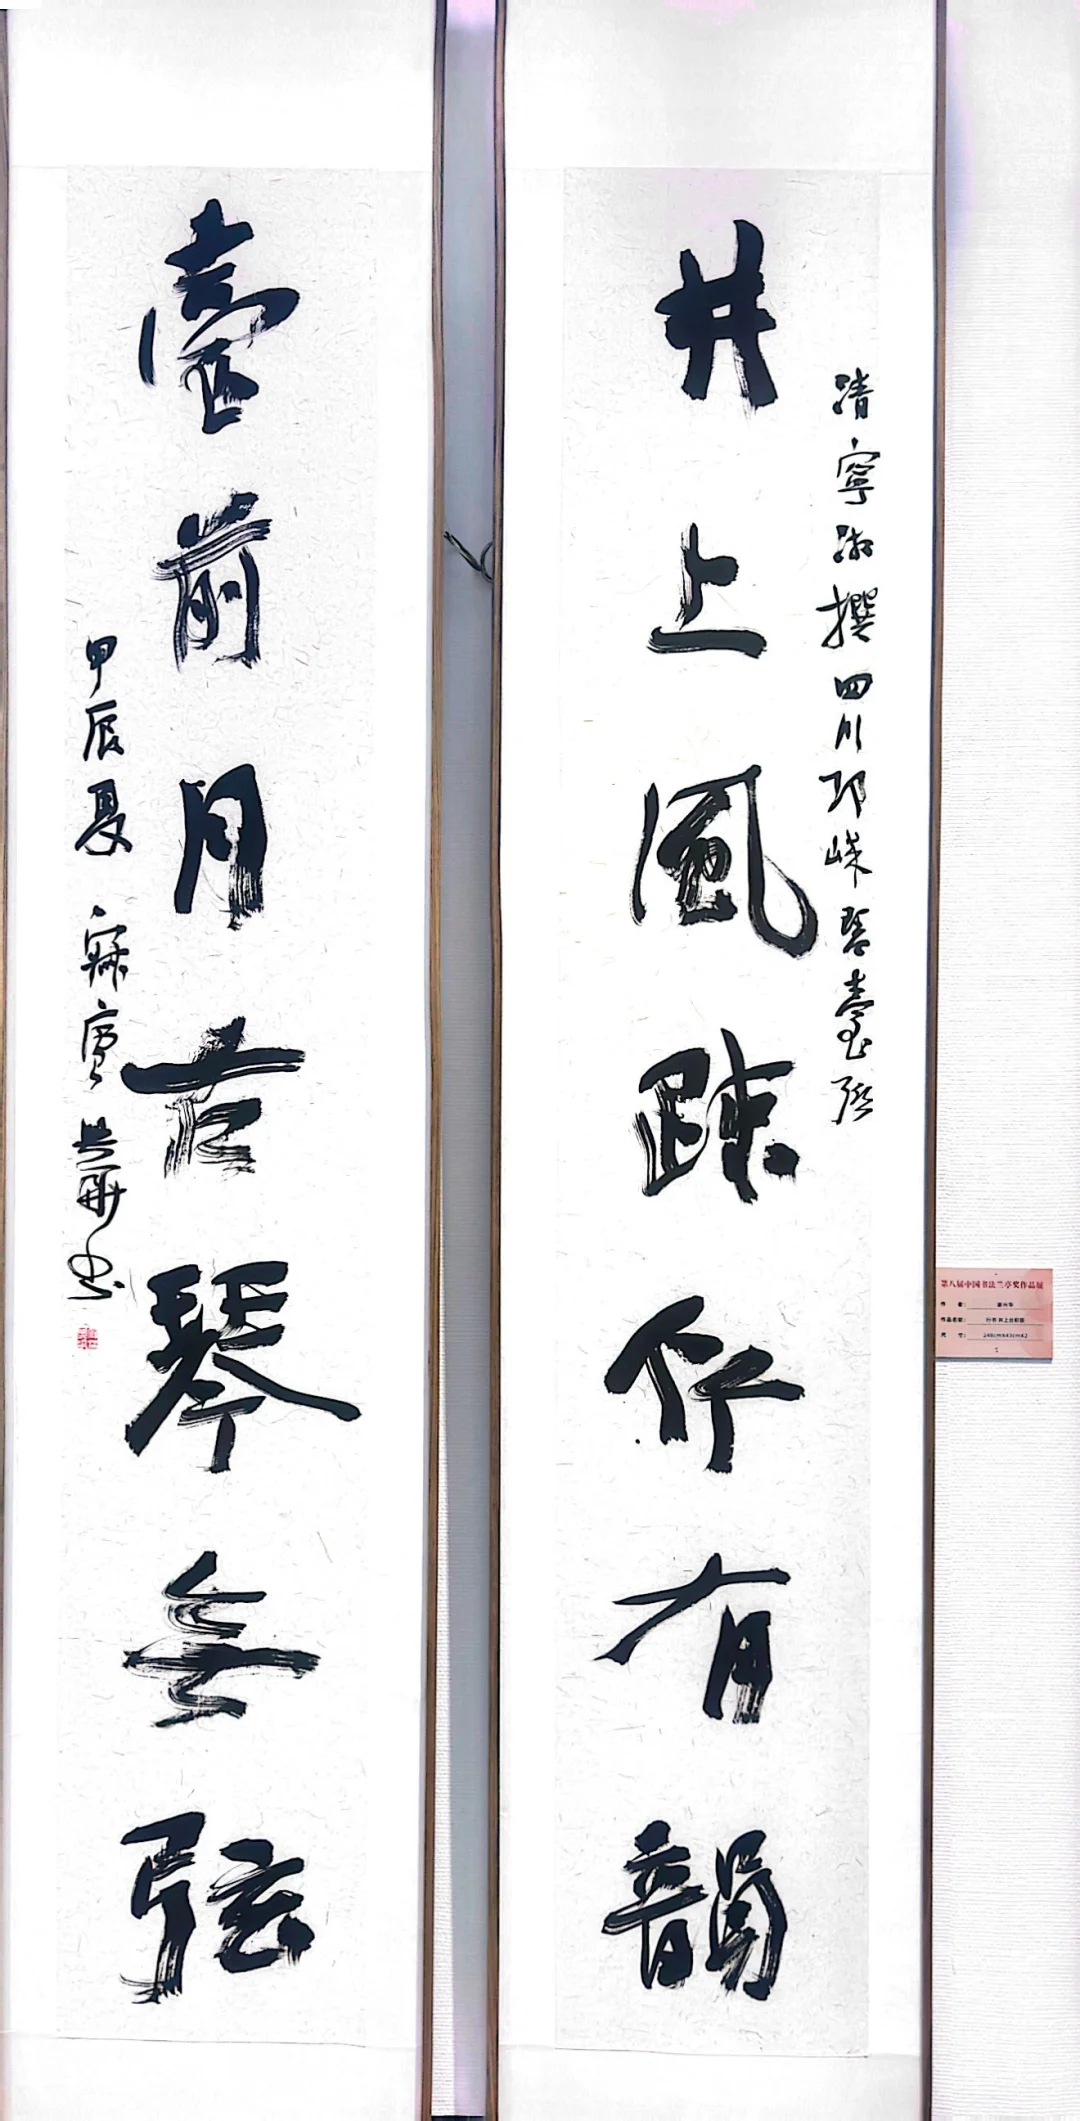 清寧湘撰四川邛崍琴臺聯
井上風疎竹有韻
臺前月古琴無弦
甲辰夏
第八届中国书法兰亭奖作品展
作 者:
作品名称: 行书 井上台前联
尺 寸: 248cm×43cm×2